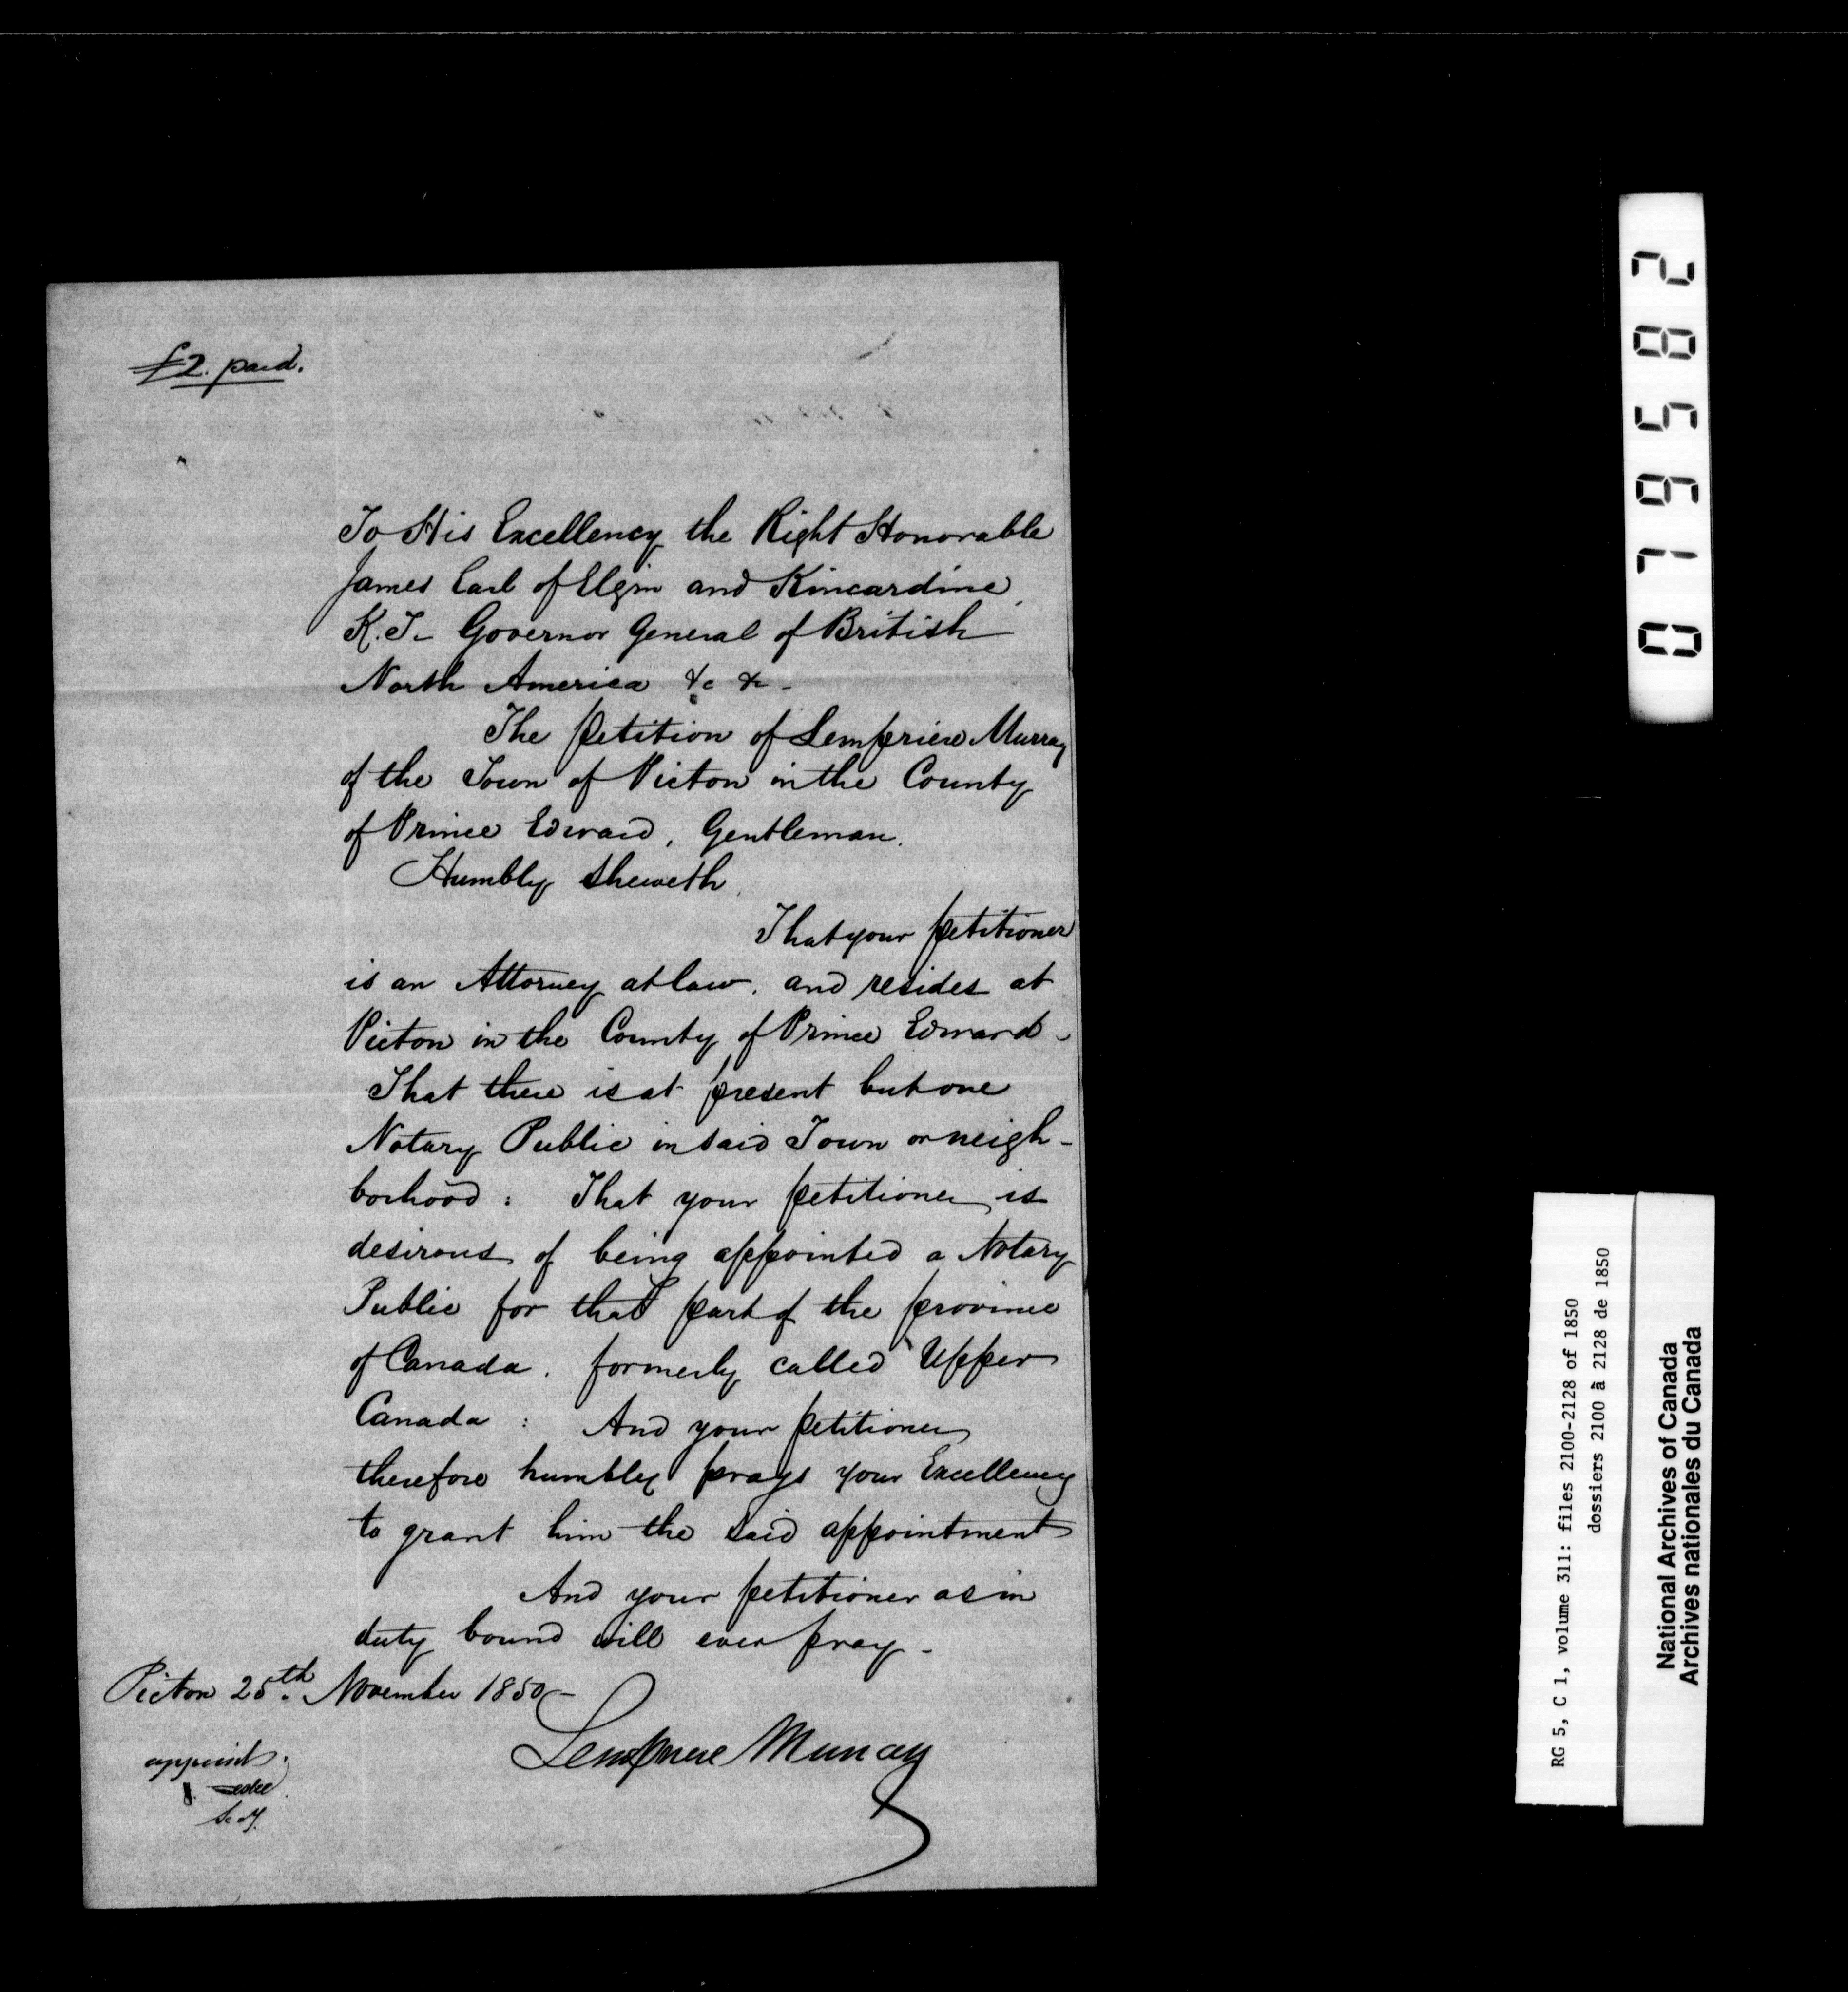 £2. paid.
To His Excellency the Right Honorable
James Earl of Elgin and Kincardine
K.T. Governor General of British
North America &c &c -
The petition of Lempriere Murray
of the Town of Picton in the County
of Prince Edward, Gentleman.
Humbly sheweth
That your petitioner
is an Attorney at law, and resides at
Picton in the County of Prince Edward -
That there is at present but one
Notary Public in said Town or neigh-
borhood : That your petitioner is
desirous of being appointed a Notary
Public for that part of the province
of Canada, formerly called Upper
Canada : And your petitioner
therefore humbly prays your Excellency
to grant him the said appointment
And your petitioner as in
duty bound will ever pray -
Picton 25th. November 1850 -
Lempriere Murray
appoint.
0795582
RG 5, C 1, volume 311: files 2100-2128 of 1850
dossiers 2100 à 2128 de 1850
National Archives of Canada
Archives nationales du Canada